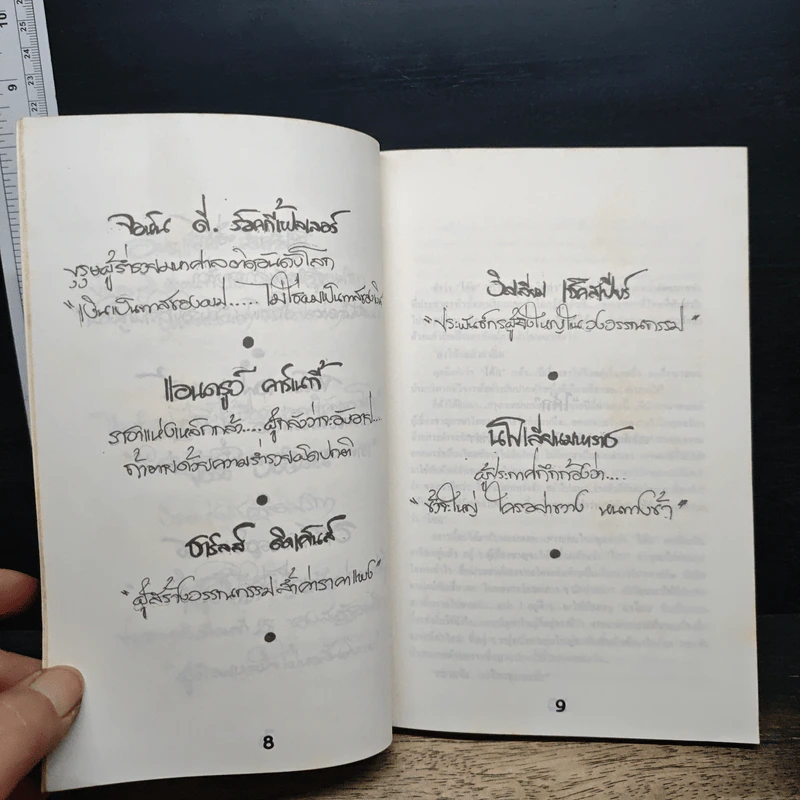 จอห์น ดี. ร็อคกี้เฟลเลอร์
ผู้ร่ำรวยมหาศาลติดอันดับโลก
"เงินเป็นทาสของผม..... ไม่ใช่ผมเป็นทาสของเงิน
แอนดรูว์ คาร์เนกี้
ราชาแห่งเหล็กกล้า.... ผู้กลัวว่าจะอับอาย...
ถ้าตายด้วยความร่ำรวยผิดปกติ
ชาร์ลส์ ดิคเค้นส์
"ผู้สร้างวรรณกรรมล้ำค่าราคาแพง"
8
วิลเลี่ยม เช็คสเปียร์
"ประพันธ์กรผู้ยิ่งใหญ่ในวงวรรณกรรม"
นโปเลียนมหาราช
ผู้ประกาศกึกก้องว่า....
"ข้าจะใหญ่ ใครอย่าขวาง หนทางข้า"
9
10
9
25
24
23
22